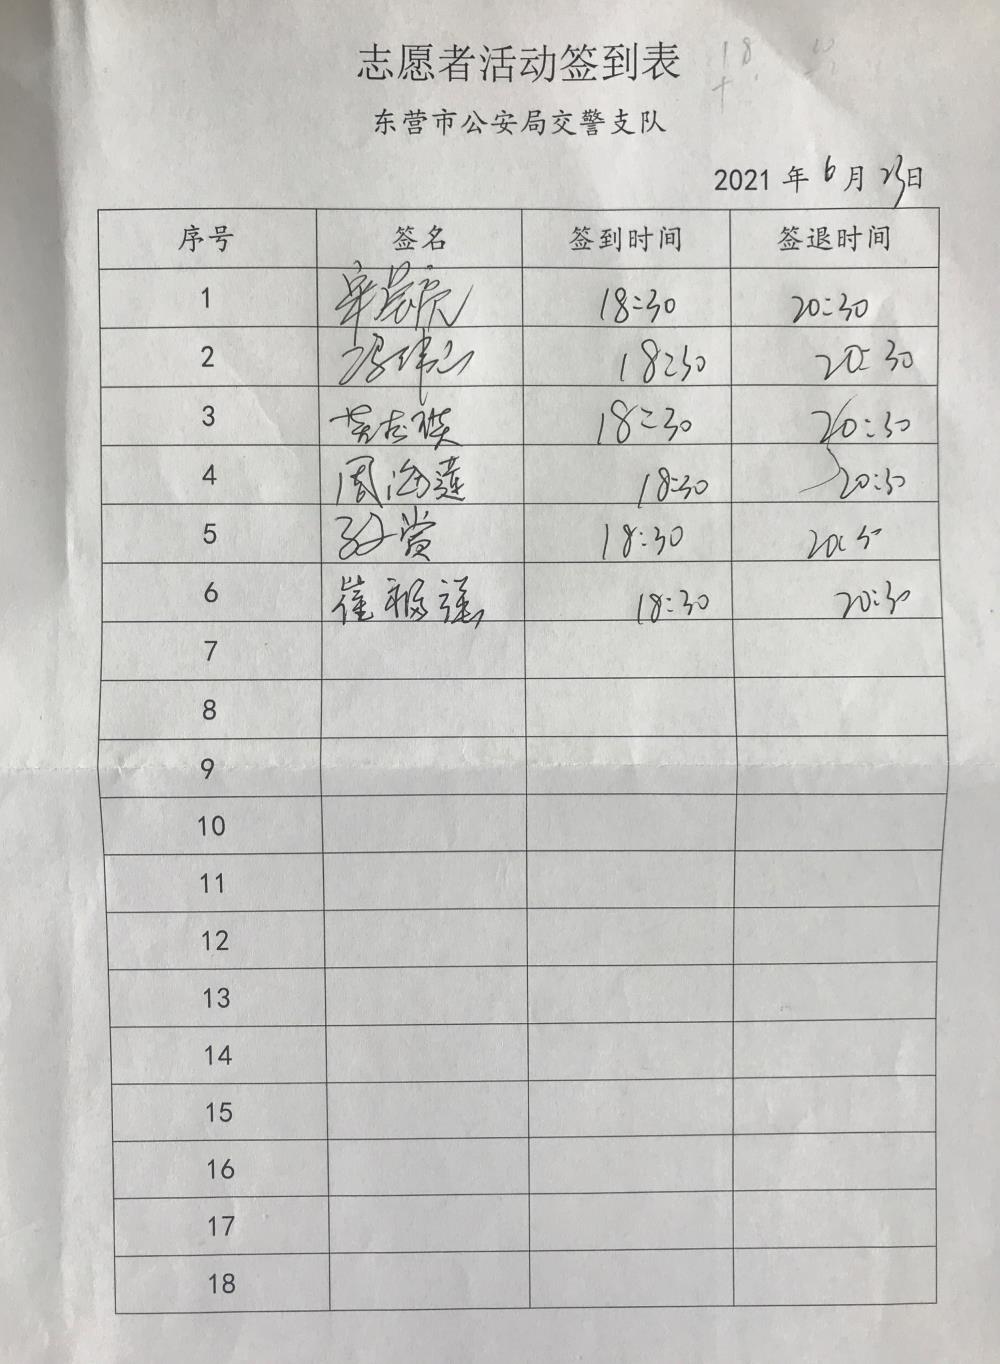 志愿者活动签到表
东营市公安局交警支队
2021 年 6 月 23 日
序号 签名 签到时间 签退时间
1 18:30 20:30
2 18:30 20:30
3 18:30 20:30
4 周海莲 18:30 20:30
5 18:30
6 崔福强 18:30 20:30
7
8
9
10
11
12
13
14
15
16
17
18